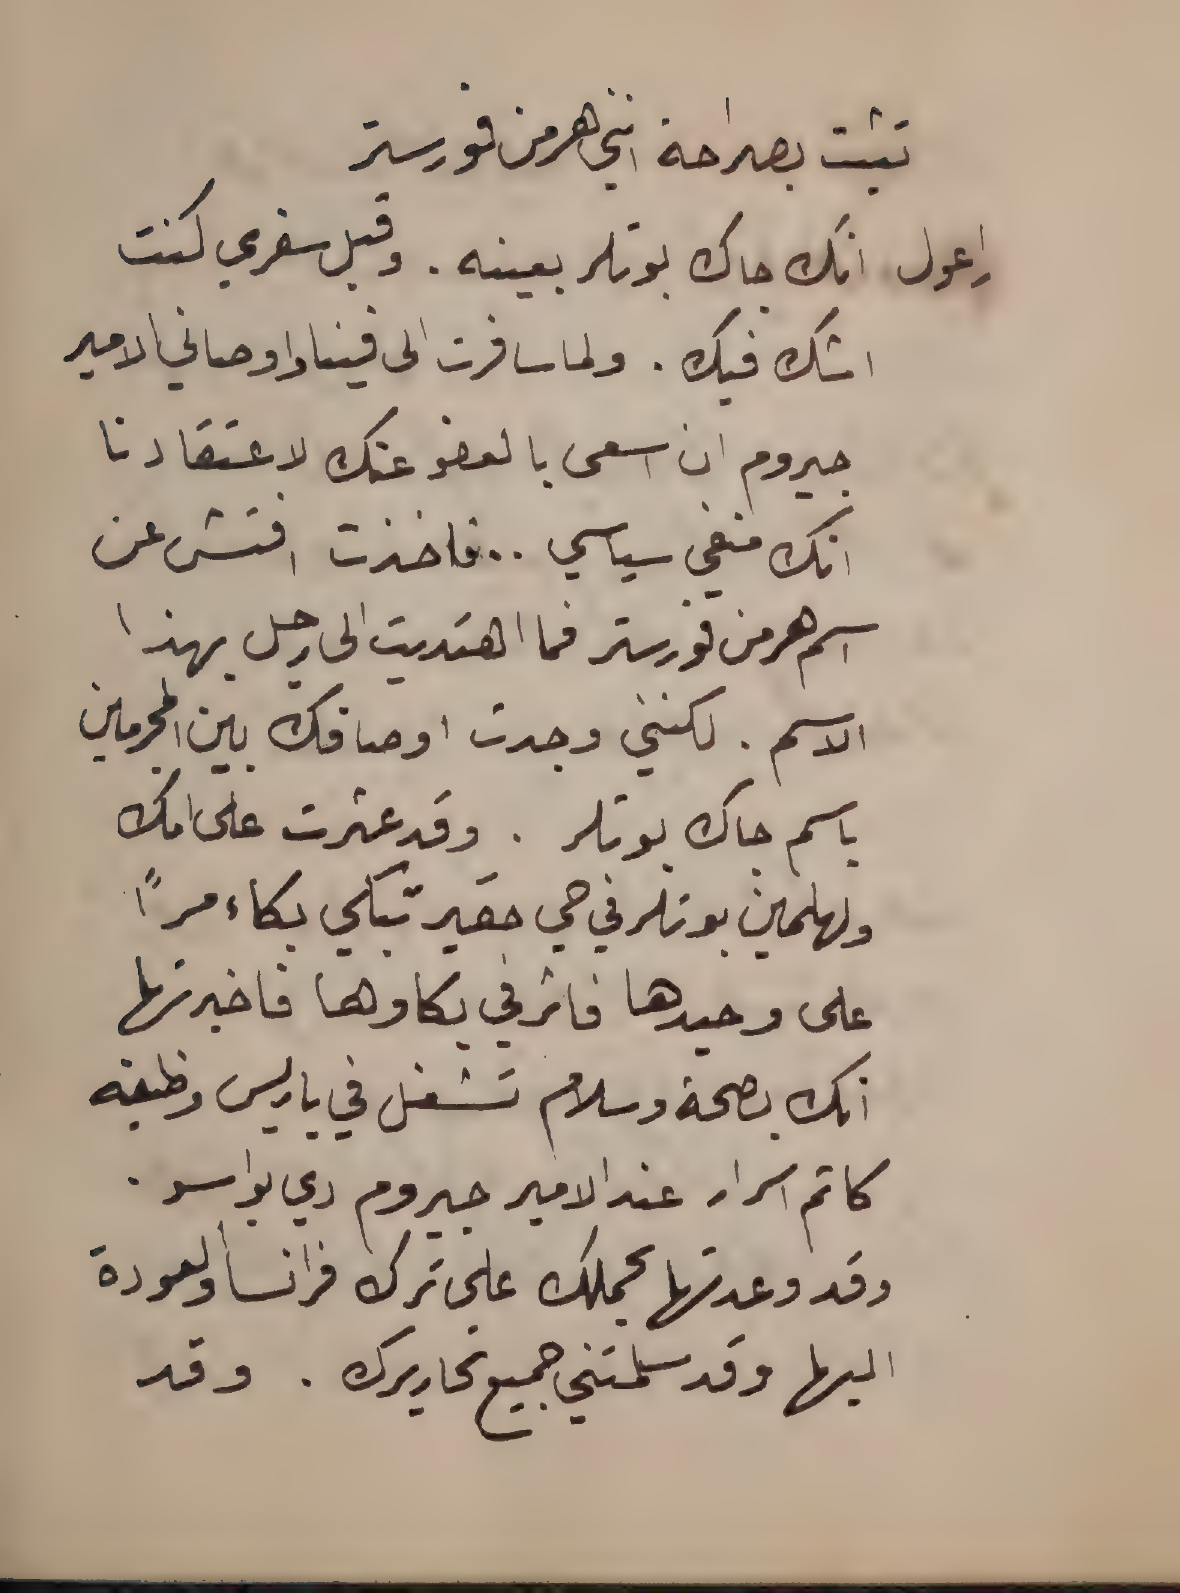 تثبت بصراحة انني هرمن فورستر
راعول انك جاك بوتلر بعينه . وقبل سفري كنت
اشك فيك . ولما سافرت الى فينا اوصاني الامير
جيروم ان اسعى بالعفو عنك لاعتقادنا
انك منفي سياسي ... فاخذت افتش عن
اسم هرمن فورستر فما اهتديت الى رجل بهذا
الاسم . لكنني وجدت اوصافك بين المجرمين
باسم جاك بوتلر . وقد عثرت على امك
ولهلمين بوتلر في حي حقير تبكي بكاء مرًا
على وحيدها فاثر في بكاوها فاخبرتها
انك بصحة وسلام تشغل في باريس وظيفة
كاتم اسرار عند الامير جيروم دي بواسو .
وقد وعدتها بحملك على ترك فرانسا والعودة
اليها وقد سلمتني جميع تحاريرك . وقد